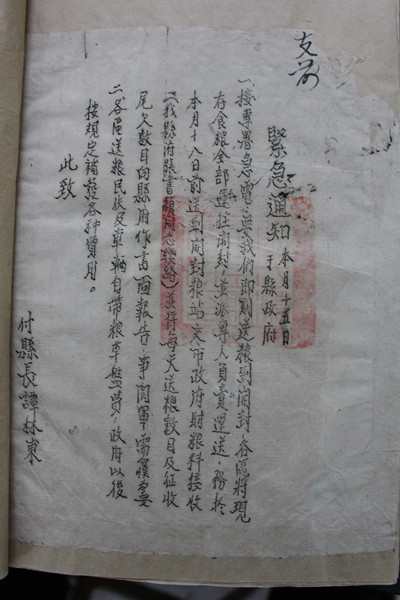 支前
緊急通知 本月十五日
于縣政府
一、接專署急電：要我們即刻送粮到開封，各區將現
存食粮全部運往開封，並派專人負責運送，務於
本月十八日前送到開封粮站，交市政府財粮科接收
（我縣府賬書 ）並將每天送粮數目及征收
尾欠數目向縣府作書面報告，事関軍需
二、各區送粮民伕及車輛自帶粮草盤費，政府以後
按規定補發各种費用。
此致
付縣長譚林東